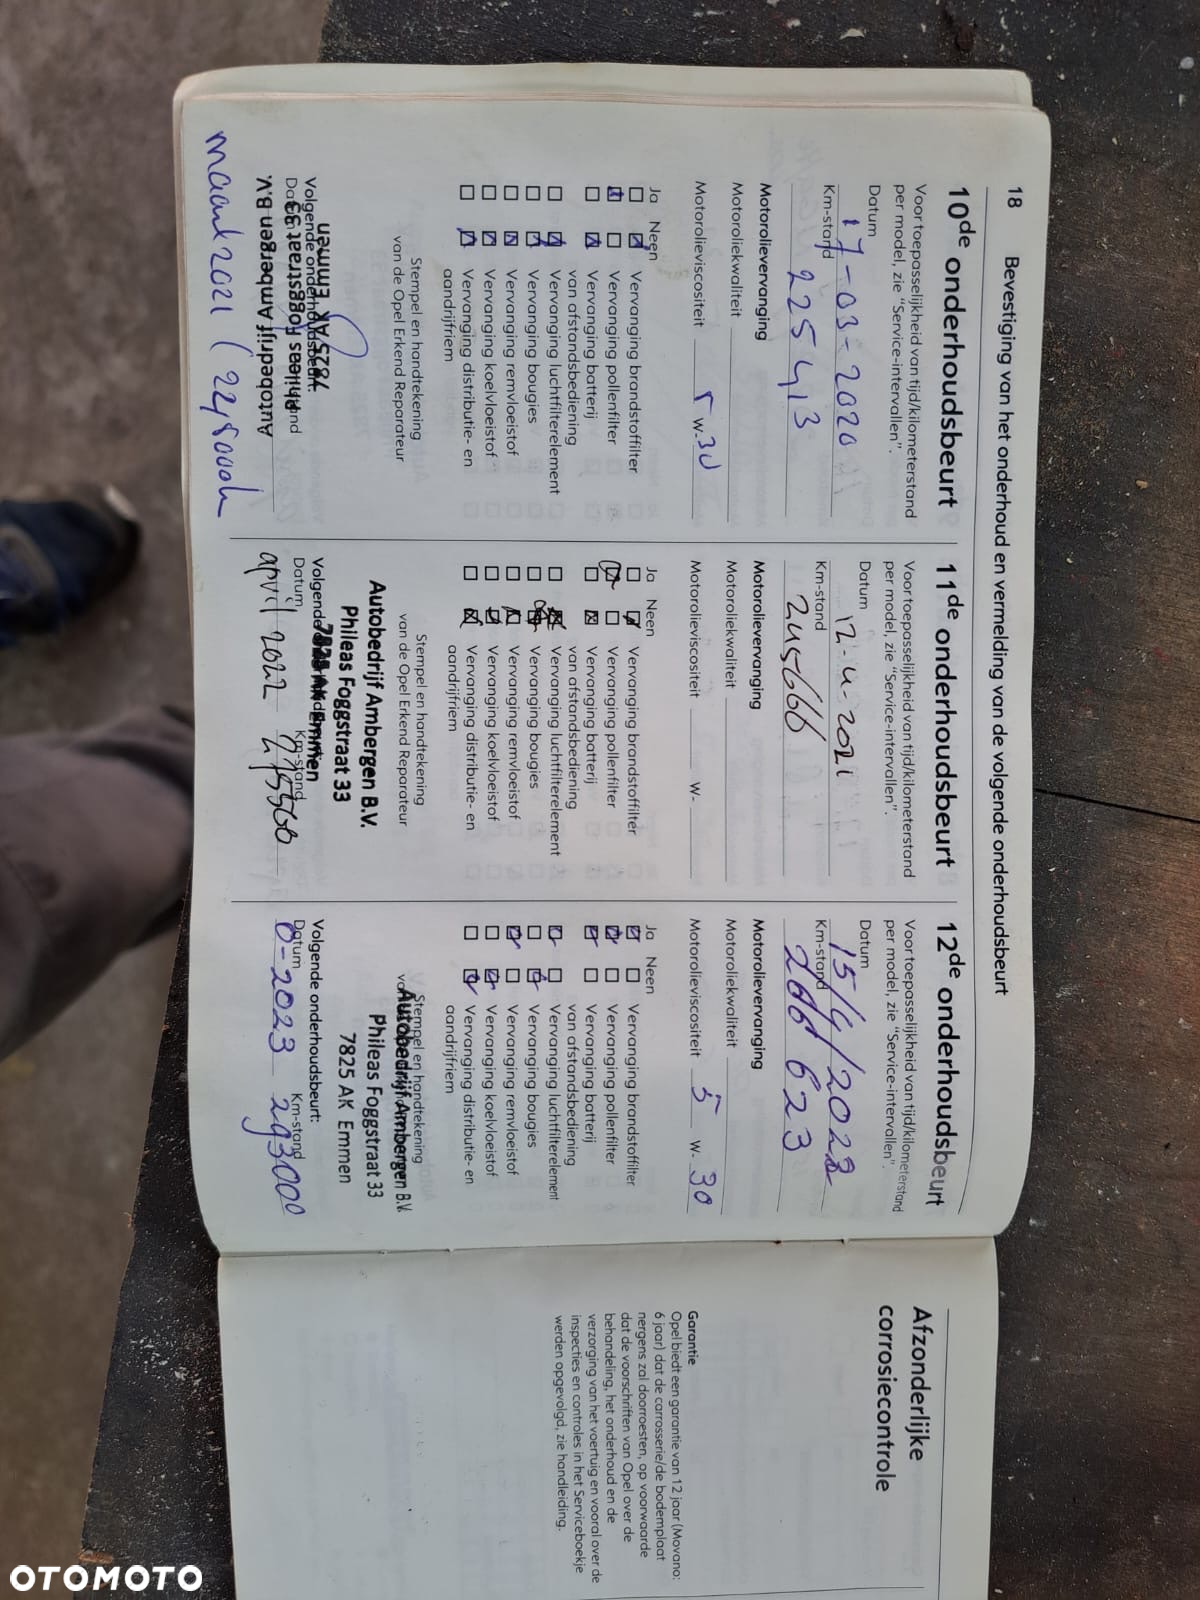 18 Bevestiging van het onderhoud en vermelding van de volgende onderhoudsbeurt
10de onderhoudsbeurt
Voor toepasselijkheid van tijd/kilometerstand
per model, zie "Service-intervallen".
Datum
17-03-2020
Km-stand
225413
Motorolievervanging
Motoroliekwaliteit
Motorolieviscositeit 5 W-30
Ja Neen
Vervanging brandstoffilter
Vervanging pollenfilter
Vervanging batterij
van afstandsbediening
Vervanging luchtfilterelement
Vervanging bougies
Vervanging remvloeistof
Vervanging koelvloeistof
Vervanging distributie- en
aandrijfriem
Stempel en handtekening
van de Opel Erkend Reparateur
7825 AK Emmen
Volgende onderhoudsbeurt:
Phileas Foggstraat 33
Autobedrijf Ambergen B.V.
maart 2021
11de onderhoudsbeurt
Voor toepasselijkheid van tijd/kilometerstand
per model, zie "Service-intervallen".
Datum
12-4-2021
Km-stand
245666
Motorolievervanging
Motoroliekwaliteit
Motorolieviscositeit W-
Ja Neen
Vervanging brandstoffilter
Vervanging pollenfilter
Vervanging batterij
van afstandsbediening
Vervanging luchtfilterelement
Vervanging bougies
Vervanging remvloeistof
Vervanging koelvloeistof
Vervanging distributie- en
aandrijfriem
Stempel en handtekening
van de Opel Erkend Reparateur
Autobedrijf Ambergen B.V.
Phileas Foggstraat 33
7825 AK Emmen
Volgende
Datum Km-stand
april 2022
12de onderhoudsbeurt
Voor toepasselijkheid van tijd/kilometerstand
per model, zie "Service-intervallen".
Datum
15/4/2022
Km-stand
266623
Motorolievervanging
Motoroliekwaliteit
Motorolieviscositeit 5 W-30
Ja Neen
Vervanging brandstoffilter
Vervanging pollenfilter
Vervanging batterij
van afstandsbediening
Vervanging luchtfilterelement
Vervanging bougies
Vervanging remvloeistof
Vervanging koelvloeistof
Vervanging distributie- en
aandrijfriem
Stempel en handtekening
Autobedrijf Ambergen B.V.
Phileas Foggstraat 33
7825 AK Emmen
Volgende onderhoudsbeurt:
Datum Km-stand
0-2023 293000
Afzonderlijke
corrosiecontrole
Garantie
Opel biedt een garantie van 12 jaar (Movano:
6 jaar) dat de carrosserie/de bodemplaat
nergens zal doorroesten, op voorwaarde
dat de voorschriften van Opel over de
behandeling, het onderhoud en de
verzorging van het voertuig en vooral over de
inspecties en controles in het Serviceboekje
werden opgevolgd, zie handleiding.
OTOMOTO